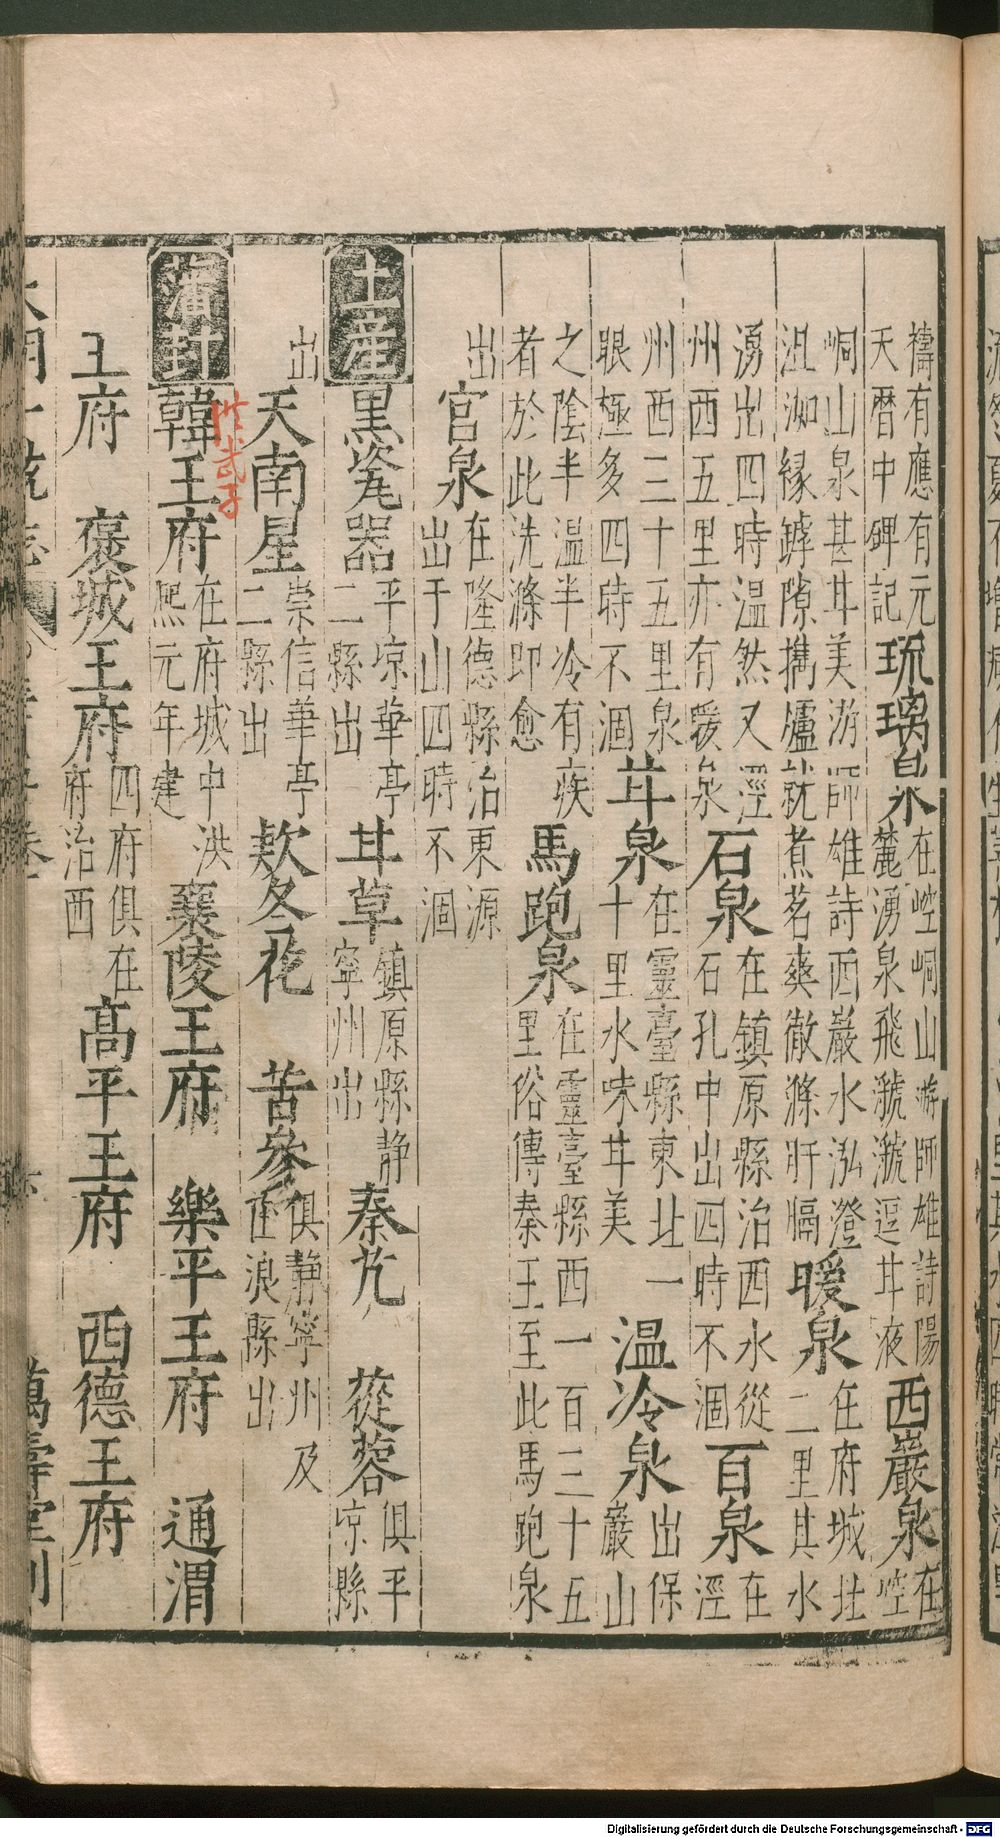 禱有應有元天曆中碑記琉璃泉在崆峒山游師雄詩陽麓湧泉飛㶁㶁逗甘液西巖泉在崆
峒山泉甚甘美游師雄詩西巖水泓澄沮洳緣罅隙攜爐就煮茗爽徹滌肝膈暖泉在府城北二里其水
湧出四時温然又涇州西五里亦有暖泉石泉在鎮原縣治西水從石孔中出四時不涸百泉在涇
州西三十五里泉眼極多四時不涸甘泉在靈臺縣東北一十里水味甘美温冷泉出保巖山
之陰半温半冷有疾者於此洗滌即愈馬跑泉在靈臺縣西一百二十五里俗傳秦王至此馬跑泉
出官泉在隆德縣治東源出于山四時不涸
土産 黑瓷器平凉華亭二縣出甘草鎮原縣静寧州出秦艽 蓯蓉俱平凉縣
出天南星崇信華亭二縣出欵冬花 苦參俱静寧州及莊浪縣出
藩封 韓王府在府城中洪熙元年建襄陵王府 樂平王府 通渭
王府 褒城王府四府俱在府治西高平王府 西德王府
大明一統志 萬壽堂刊
Digitalisierung gefördert durch die Deutsche Forschungsgemeinschaft - DFG